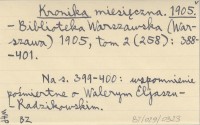 Kronika miesięczna. 1905.
- Biblioteka Warszawska (War-
szawa) 1905, tom 2 (258): 388-
-401.
Na s. 399-400: wspomnienie
pośmiertne o Walerym Eljaszu-
-Radzikowskim.
BZ